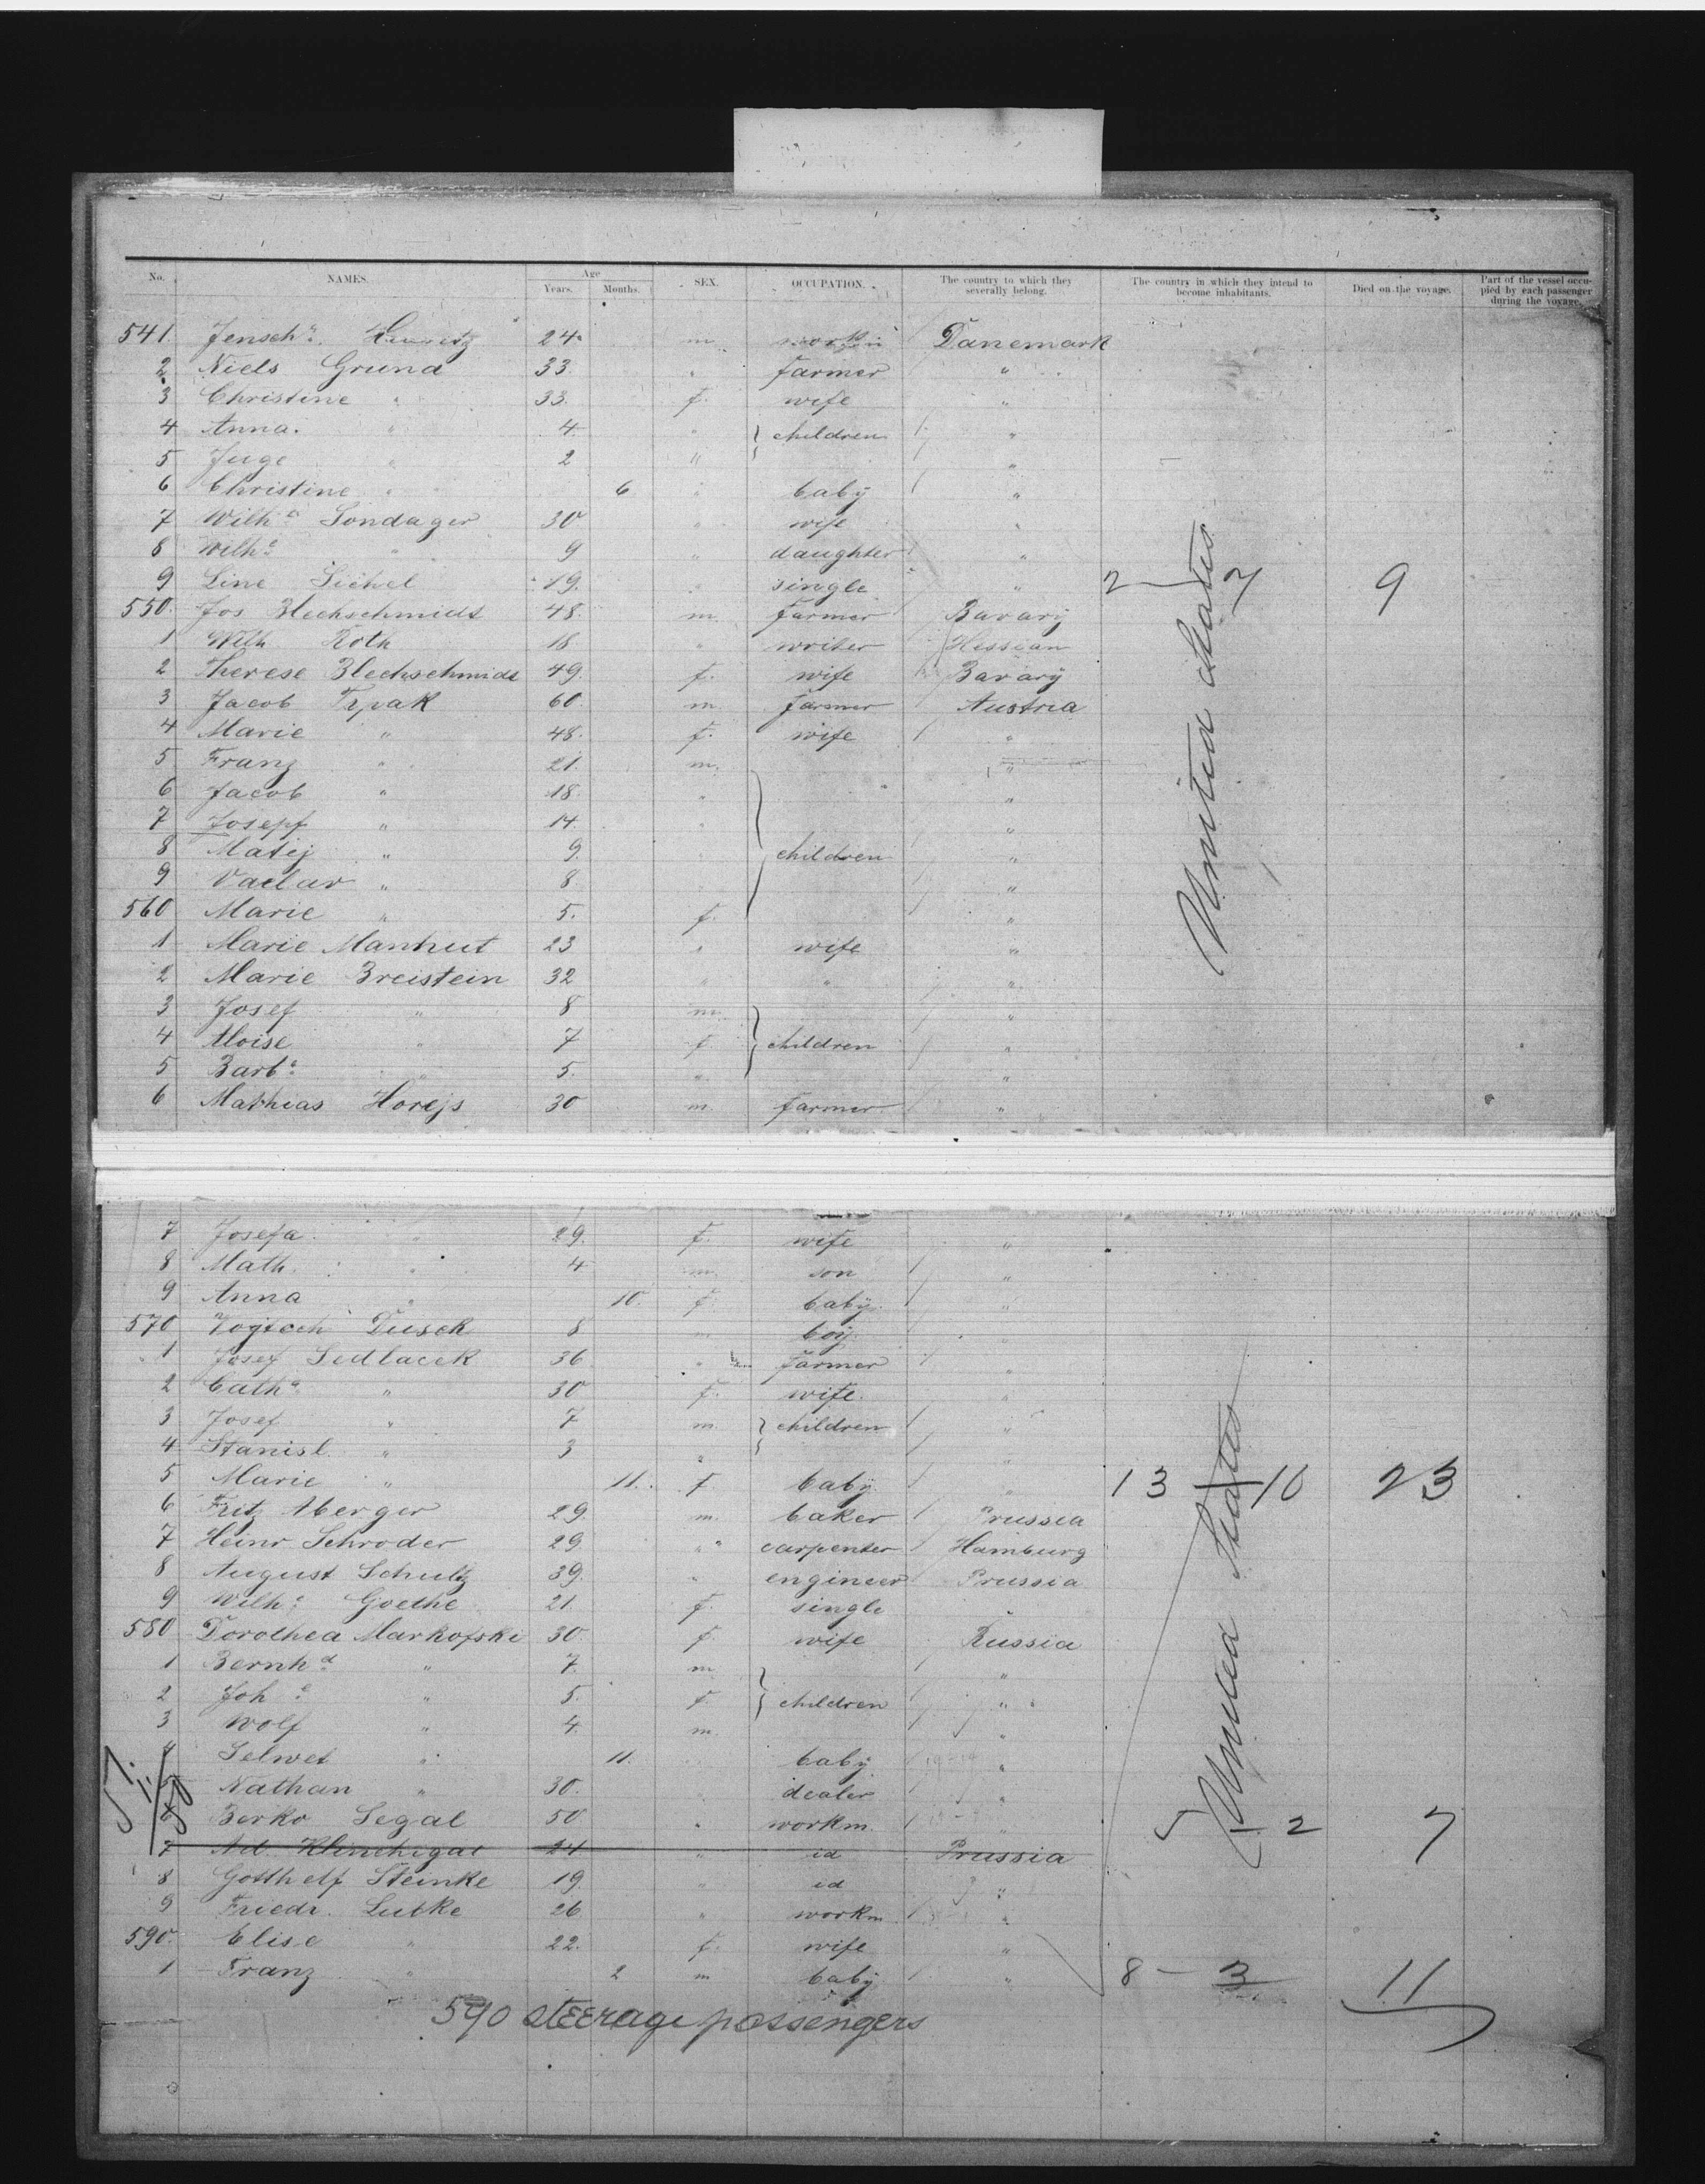 No. NAMES. Age Years. Months. SEX. OCCUPATION. The country to which they severally belong. The country in which they intend to become inhabitants. Died on the voyage. Part of the vessel occupied by each passenger during the voyage.
541. 24. m Danemark
2 Niels Grund 33. " farmer "
3 Christine " 33. f. wife "
4 Anna. " 4. " children "
5 Juge " 2 " "
6 Christine " 6 " baby "
7 Wilh.e Sondager 30 " wife "
8 Wilh.e " 9 " daughter "
9 Line Sichel 19. " single " 2 — 7 9
550. Jos Blechschmidt 48. m. farmer Bavary
1 Wilh Roth 18. " writer Hessian
2 Therese Blechschmidt 49. f. wife Bavary
3 Jacob Trpak 60. m farmer Austria
4 Marie " 48. f. wife "
5 Franz " 21. m. "
6 Jacob " 18. " "
7 Josepf " 14. " "
8 Matej " 9. " children "
9 Vaclav " 8. " "
560 Marie " 5. f. "
1 Marie Manhut 23 " wife "
2 Marie Breistein 32 " " "
3 Josef " 8 m. "
4 Aloise " 7 f. children "
5 Barb.a " 5. " "
6 Mathias Horejs 30 m. farmer "
United States
7 Josefa " 29. f. wife "
8 Math. " 4 m. son "
9 Anna " 10. f. baby. "
570 Vojtech Dusek 8 m boy. "
1 Josef Sedlacek 36 " farmer "
2 Cath.a " 30 f. wife. "
3 Josef " 7 m. children "
4 Stanisl. " 3 " "
5 Marie " 11. f. baby. " 13 — 10 23
6 Fritz Aberger 29. m. baker Prussia
7 Heinr Schroder 29 " carpenter Hamburg
8 August Schultz 39. " engineer Prussia
9 Wilh.e Goethe 21. f. single "
580 Dorothea Markofski 30. f. wife Russia
1 Bernh.d " 7. m "
2 Joh.e " 5. f. children "
3 Wolf " 4. m. "
4 Selwet " 11. baby "
5 Nathan " 30. " dealer "
6 Berko Segal 50 " workm. " 5 — 2 7
7 24 " id Prussia
8 Gotthelf Steinke 19. " id "
9 Friedr. Lutke 26 " workm "
590. Elise " 22. f. wife "
1 Franz " 2 m baby " 8 — 3 11
United States
590 steerage passengers